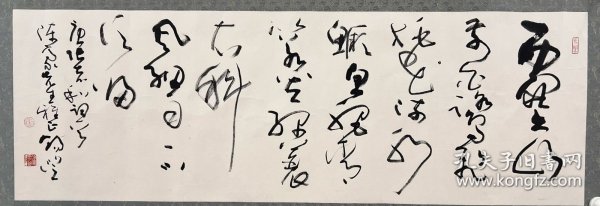 西塞山
前白鹭飞
桃花流水
鳜鱼肥青
箬笠绿蓑
衣斜
风细雨不
须归
唐张志和词
先生雅正
孔夫子旧书网
www.kongfz.com